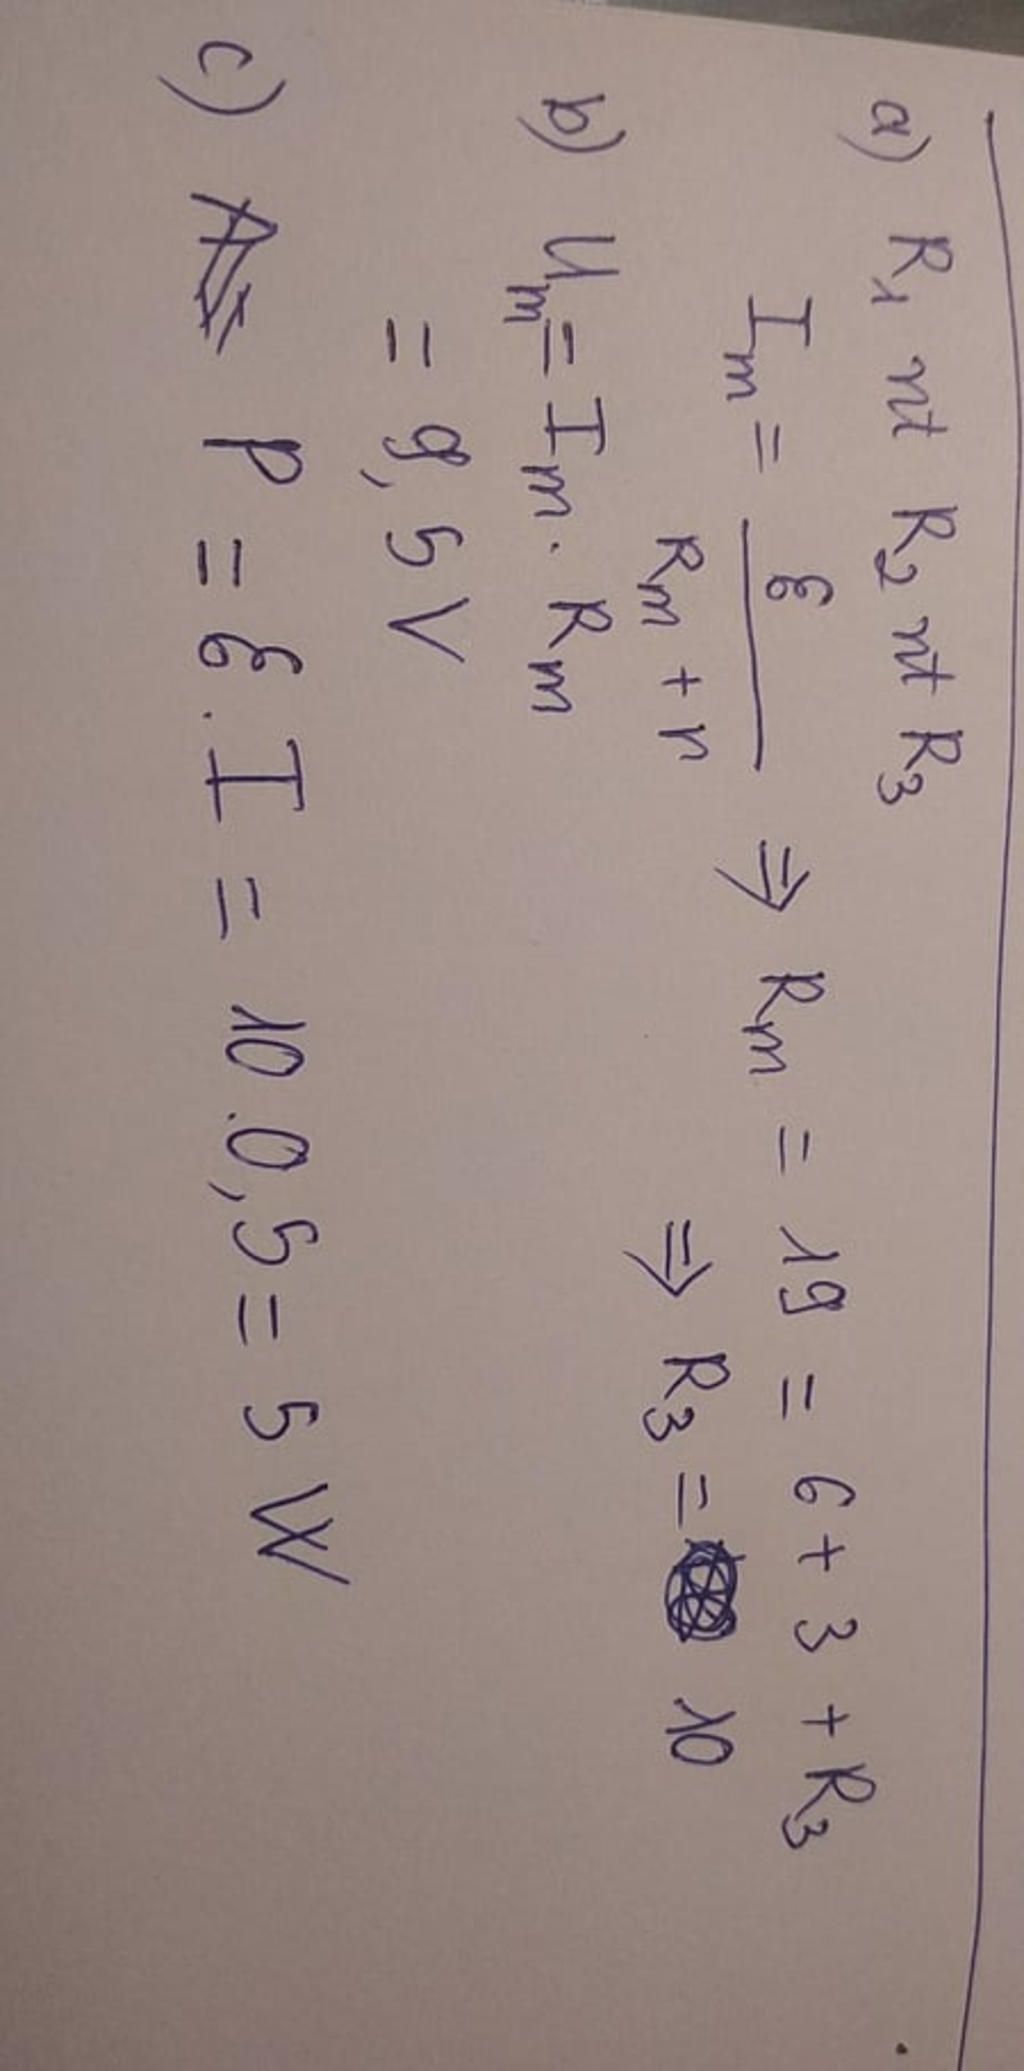 a) R₁ nt R₂ nt R₃
Iₘ = ℰ / (Rₘ + r) ⇒ Rₘ = 19 = 6 + 3 + R₃
⇒ R₃ = 10
b) Uₘ = Iₘ . Rₘ
= 9,5 V
c) P = ℰ . I = 10 . 0,5 = 5 W